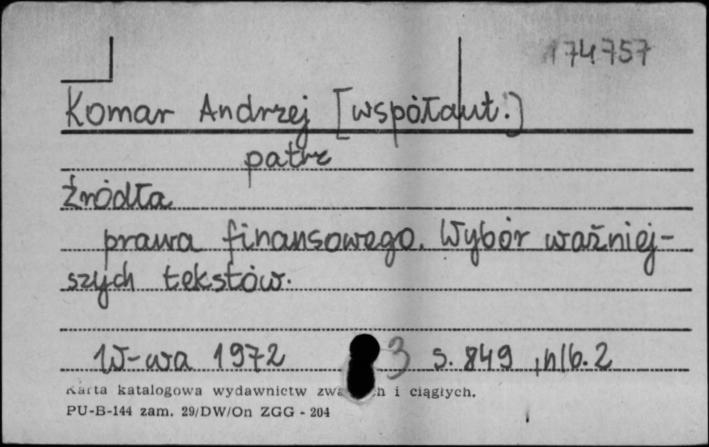 174757
Komar Andrzej [współaut.]
patrz
Źródła
prawa finansowego. Wybór ważniej-
szych tekstów.
W-wa 1972 3 s. 849, nlb. 2
Karta katalogowa wydawnictw i ciągłych.
PU-B-144 zam. 29/DW/On ZGG - 204